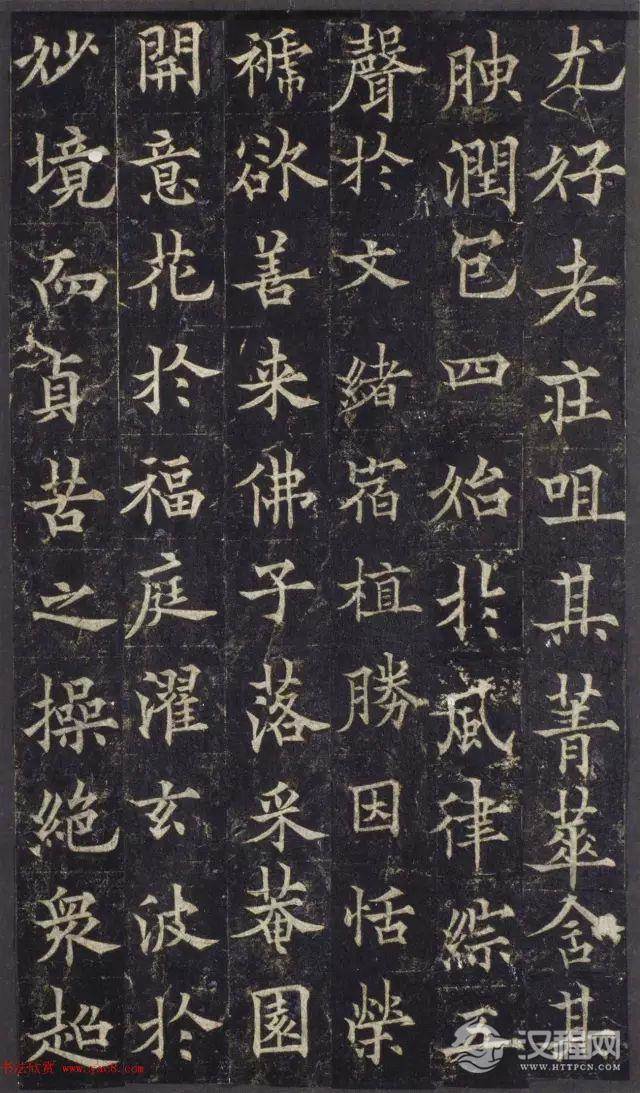 尤好老莊咀其菁華含其
腴潤包四始於風律綜五
聲於文緒宿植勝因恬榮
褫欲善来佛子落采菴園
開意花於福庭濯玄波於
妙境而貞苦之操絶衆超
书法欣赏 www.yac8.com
汉程网
WWW.HTTPCN.COM